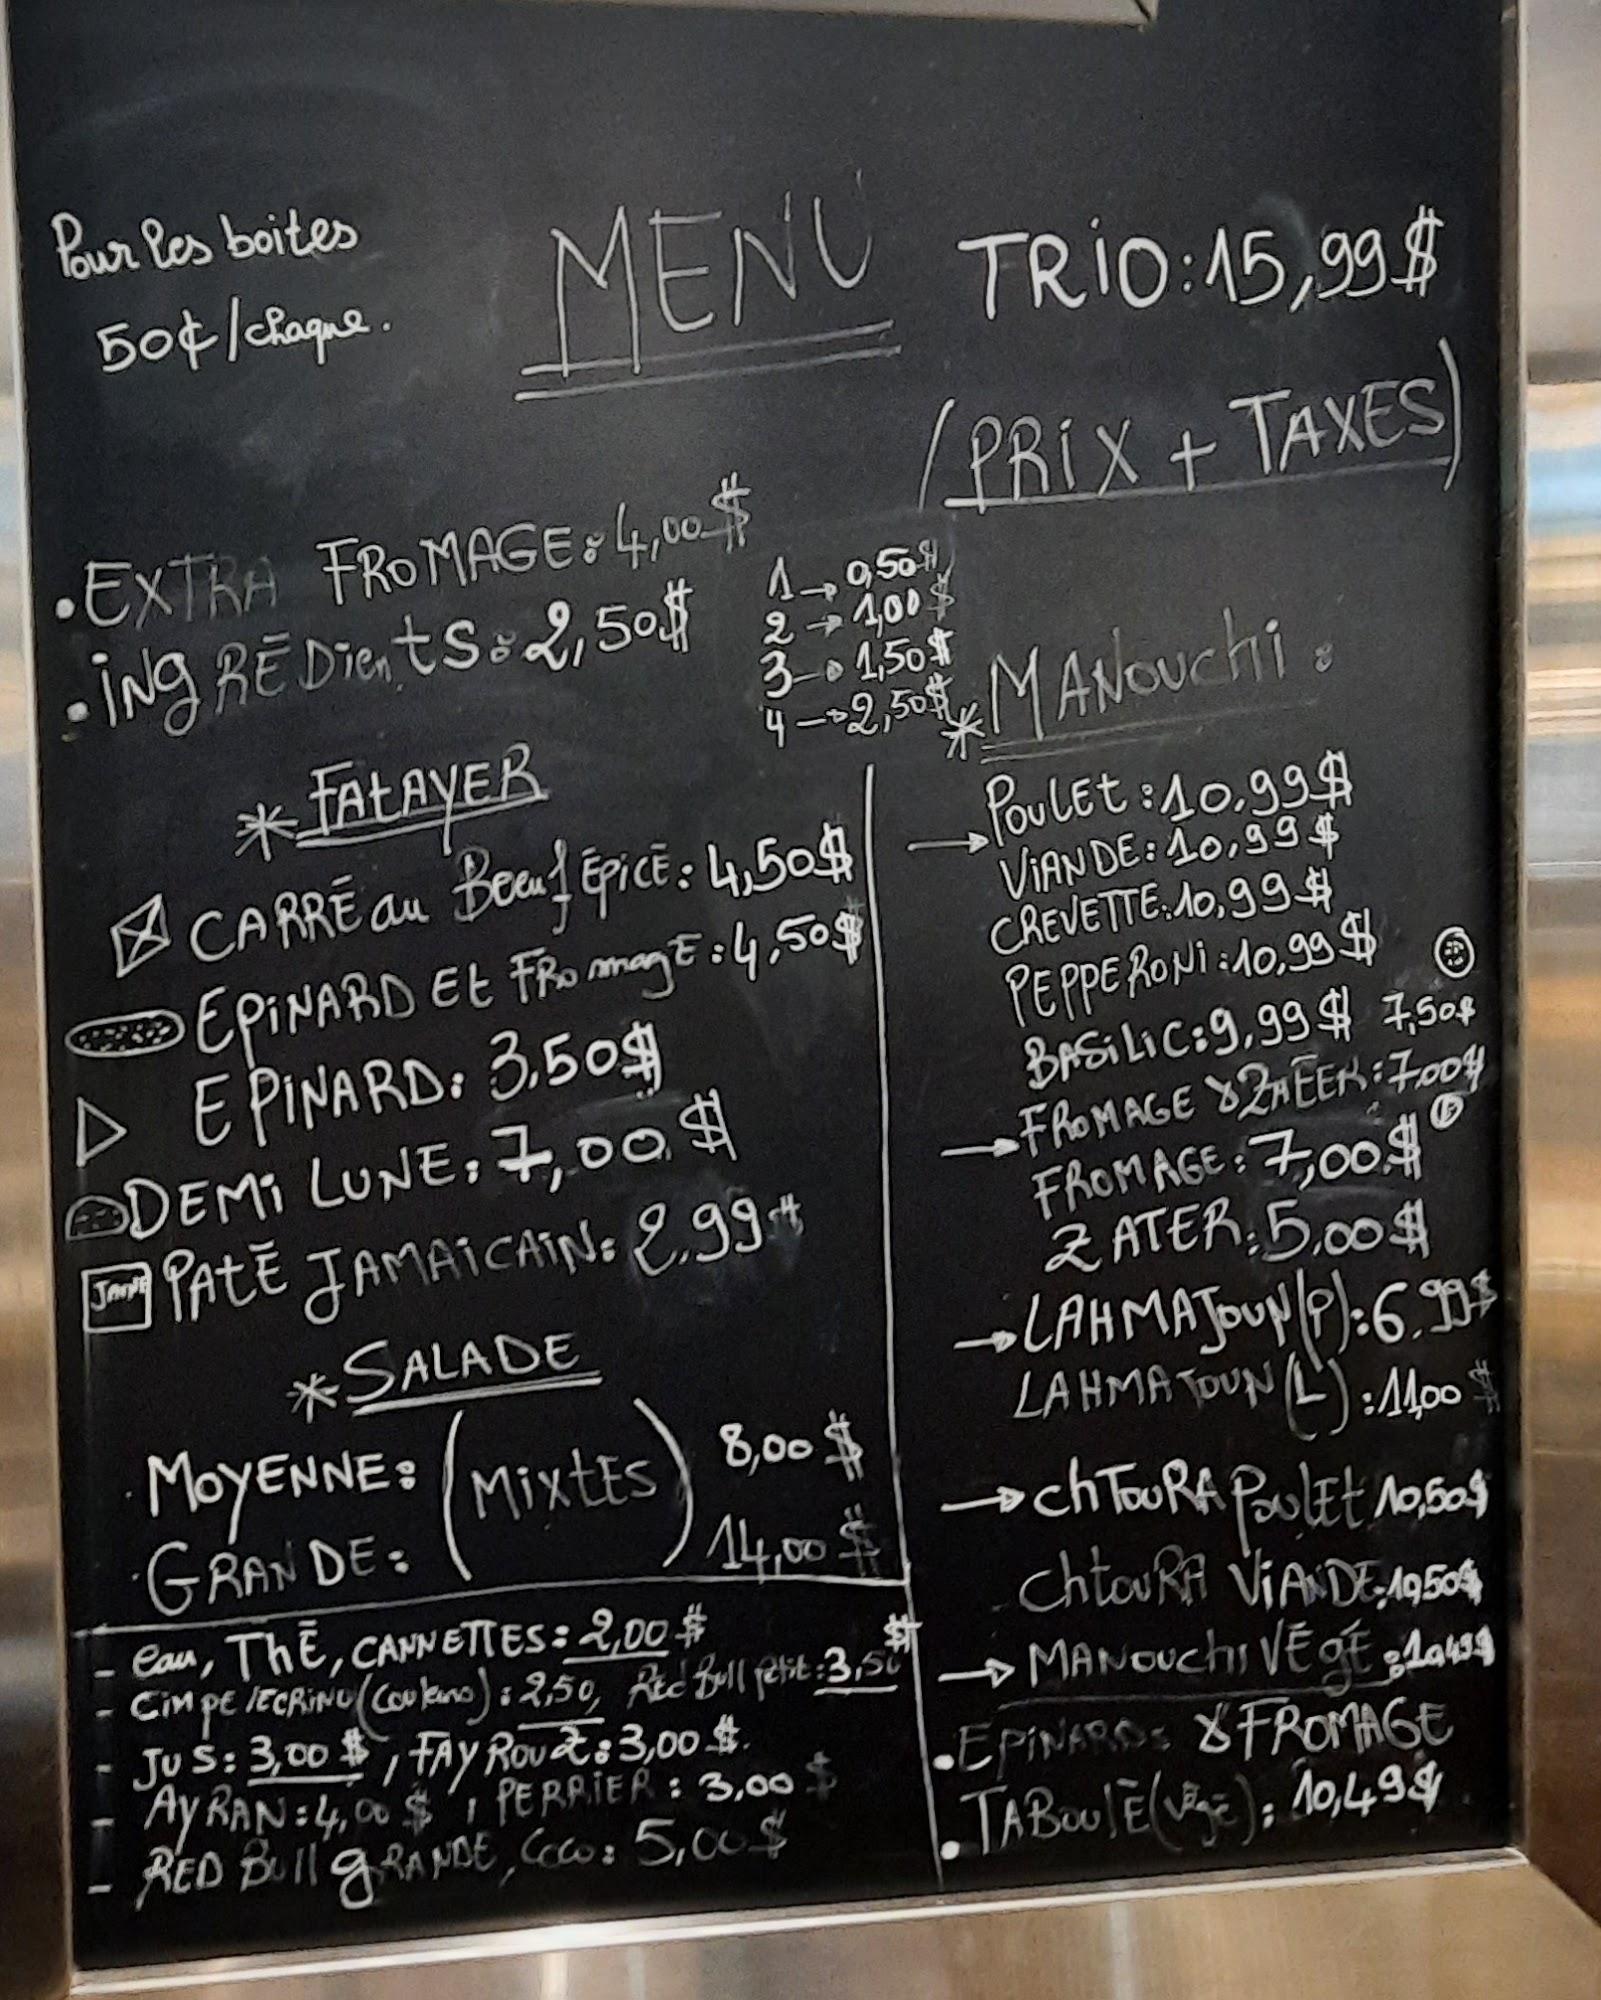 Pour les boites
50¢/chaque.
MENU
TRIO: 15,99$
(PRIX + TAXES)
• EXTRA FROMAGE: 4,00$
• INGRÉDIENTS: 2,50$
1 → 0,50$
2 → 1,00$
3 → 1,50$
4 → 2,50$
* FATAYER
CARRÉ au Boeuf ÉPICÉ: 4,50$
EPINARD Et FROmagE: 4,50$
EPINARD: 3,50$
DEMI LUNE: 7,00$
PATÉ JAMAICAIN: 2.99$
* SALADE
MOYENNE: (MIXTES) 8,00$
GRANDE: 14,00$
- eau, THÉ, CANNETTES: 2,00$
- 2,50, Red Bull petit: 3,50$
- JUS: 3,00$, FAYROUZ: 3,00$.
- AYRAN: 4,00$, PERRIER: 3,00$
- RED BULL gRANDE, Coco: 5,00$
* MANOUCHI:
→ POULET: 10.99$
VIANDE: 10,99$
CREVETTE: 10,99$
PEPPERONI: 10,99$
BASILIC: 9,99$ 7,50$
→ FROMAGE & ZATEER: 7,00$
FROMAGE: 7,00$
ZATER: 5,00$
→ LAHMAJOUN(P): 6.99$
LAHMAJOUN(L): 11,00$
→ CHTOURA POULET 10,50$
CHTOURA VIANDE: 10,50$
→ MANOUCHI VÉGÉ: 10,49$
• EPINARDS & FROMAGE
• TABOULÉ (végé): 10,49$